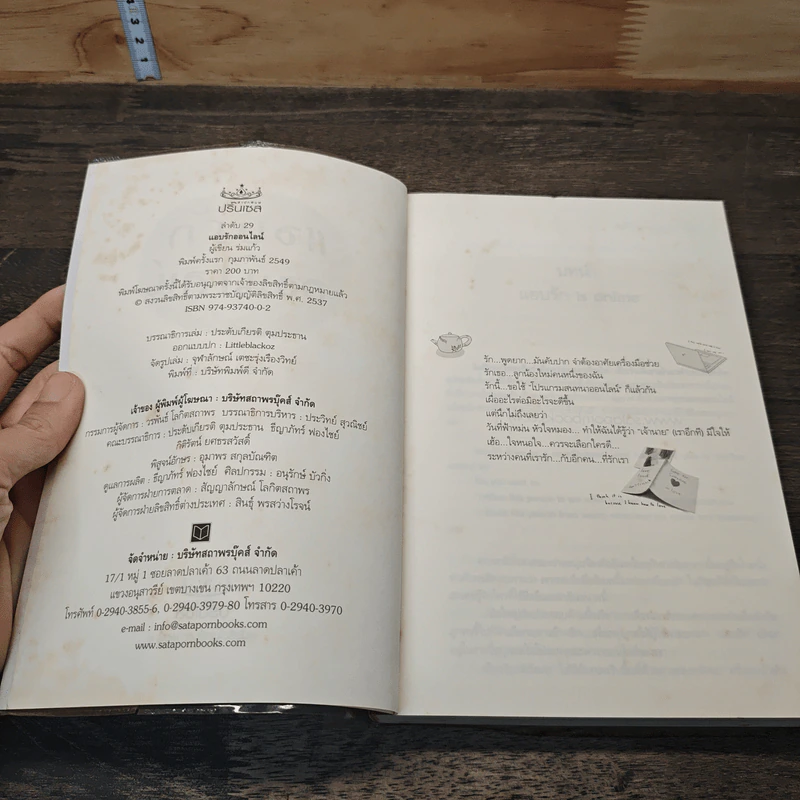 3
2
1
ปริ๊นเซส
ลำดับ 29
แอบรักออนไลน์
ผู้เขียน ร่มแก้ว
พิมพ์ครั้งแรก กุมภาพันธ์ 2549
ราคา 200 บาท
พิมพ์โฆษณาครั้งนี้ได้รับอนุญาตจากเจ้าของลิขสิทธิ์ตามกฎหมายแล้ว
© สงวนลิขสิทธิ์ตามพระราชบัญญัติลิขสิทธิ์ พ.ศ. 2537
ISBN 974-93740-0-2
บรรณาธิการเล่ม : ประดับเกียรติ ตุมประธาน
ออกแบบปก : Littleblackoz
จัดรูปเล่ม : จุฬาลักษณ์ เตชะรุ่งเรืองวิทย์
พิมพ์ที่ : บริษัทพิมพ์ดี จำกัด
เจ้าของ ผู้พิมพ์ผู้โฆษณา : บริษัทสถาพรบุ๊คส์ จำกัด
กรรมการผู้จัดการ : วรพันธ์ โลกิตสถาพร บรรณาธิการบริหาร : ประวิทย์ สุวณิชย์
คณะบรรณาธิการ : ประดับเกียรติ ตุมประธาน ธีญาภัทร์ ฟองไชย์
กิติรัตน์ ยศธรสวัสดิ์
พิสูจน์อักษร : อุมาพร สกุลบัณฑิต
ดูแลการผลิต : ธีญาภัทร์ ฟองไชย์ ศิลปกรรม : อนุรักษ์ บัวกิ่ง
ผู้จัดการฝ่ายการตลาด : สัญญาลักษณ์ โลกิตสถาพร
ผู้จัดการฝ่ายลิขสิทธิ์ต่างประเทศ : สินธุ์ พรสว่างโรจน์
จัดจำหน่าย : บริษัทสถาพรบุ๊คส์ จำกัด
17/1 หมู่ 1 ซอยลาดปลาเค้า 63 ถนนลาดปลาเค้า
แขวงอนุสาวรีย์ เขตบางเขน กรุงเทพฯ 10220
โทรศัพท์ 0-2940-3855-6, 0-2940-3979-80 โทรสาร 0-2940-3970
e-mail : info@satapornbooks.com
www.satapornbooks.com
รัก...พูดยาก...มันคับปาก จำต้องอาศัยเครื่องมือช่วย
รักเธอ...ลูกน้องใหม่คนหนึ่งของฉัน
รักนี้...ขอใช้ "โปรแกรมสนทนาออนไลน์" ก็แล้วกัน
เผื่ออะไรต่อมิอะไรจะดีขึ้น
แต่นึกไม่ถึงเลยว่า
วันที่ฟ้าหม่น หัวใจหมอง... ทำให้ฉันได้รู้ว่า "เจ้านาย" (เราอีกที) มีใจให้
เฮ้อ...ใจหนอใจ...ควรจะเลือกใครดี...
ระหว่างคนที่เรารัก...กับอีกคน...ที่รักเรา